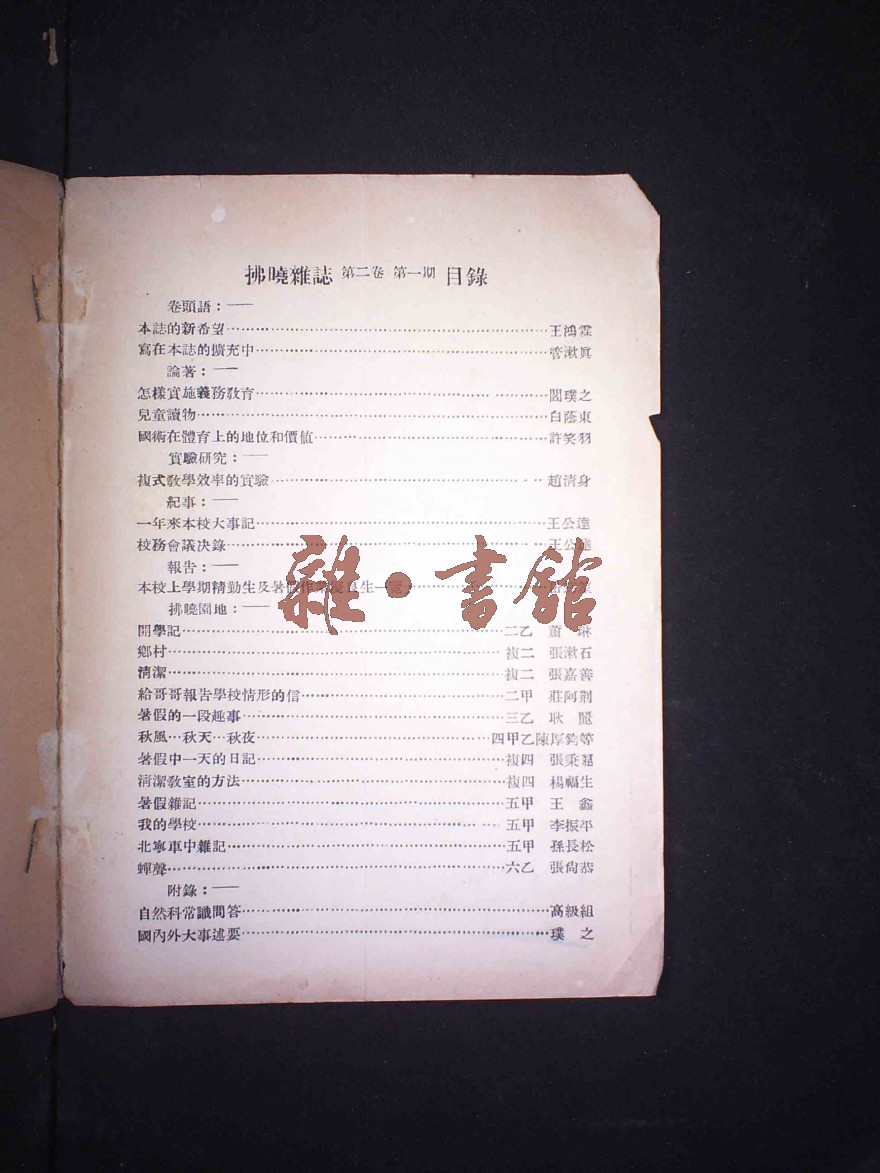 拂曉雜誌 第二卷 第一期 目錄
卷頭語：──
本誌的新希望……王鴻霖
寫在本誌的擴充中……管漱真
論著：──
怎樣實施義務教育……閻璞之
兒童讀物……白蔭東
國術在體育上的地位和價值……許笑羽
實驗研究：──
複式教學效率的實驗……趙清身
紀事：──
一年來本校大事記……王公達
校務會議决錄……王公達
報告：──
本校上學期精勤生及暑假作業優良生一覽
拂曉園地：──
開學記……二乙 蕭 琳
鄉村……複二 張漱石
清潔……複二 張嘉善
給哥哥報告學校情形的信……二甲 莊阿荆
暑假的一段趣事……三乙 耿 麗
秋風…秋天…秋夜……四甲乙陳厚鈞等
暑假中一天的日記……複四 張秉
清潔教室的方法……複四 楊福生
暑假雜記……五甲 王 鑫
我的學校……五甲 李振平
北寧車中雜記……五甲 孫長松
蟬聲……六乙 張尚恭
附錄：──
自然科常識問答……高級組
國內外大事述要……璞 之
雜·書館